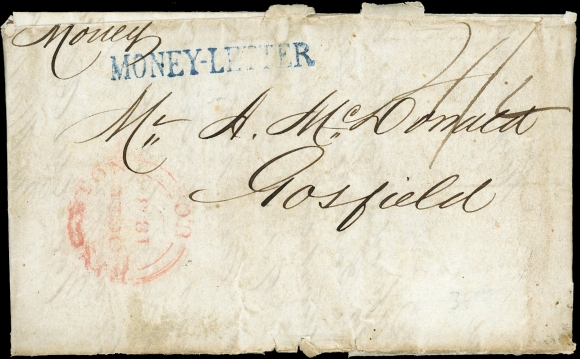 Money
MONEY-LETTER
Mr A. McDonald
Gosfield